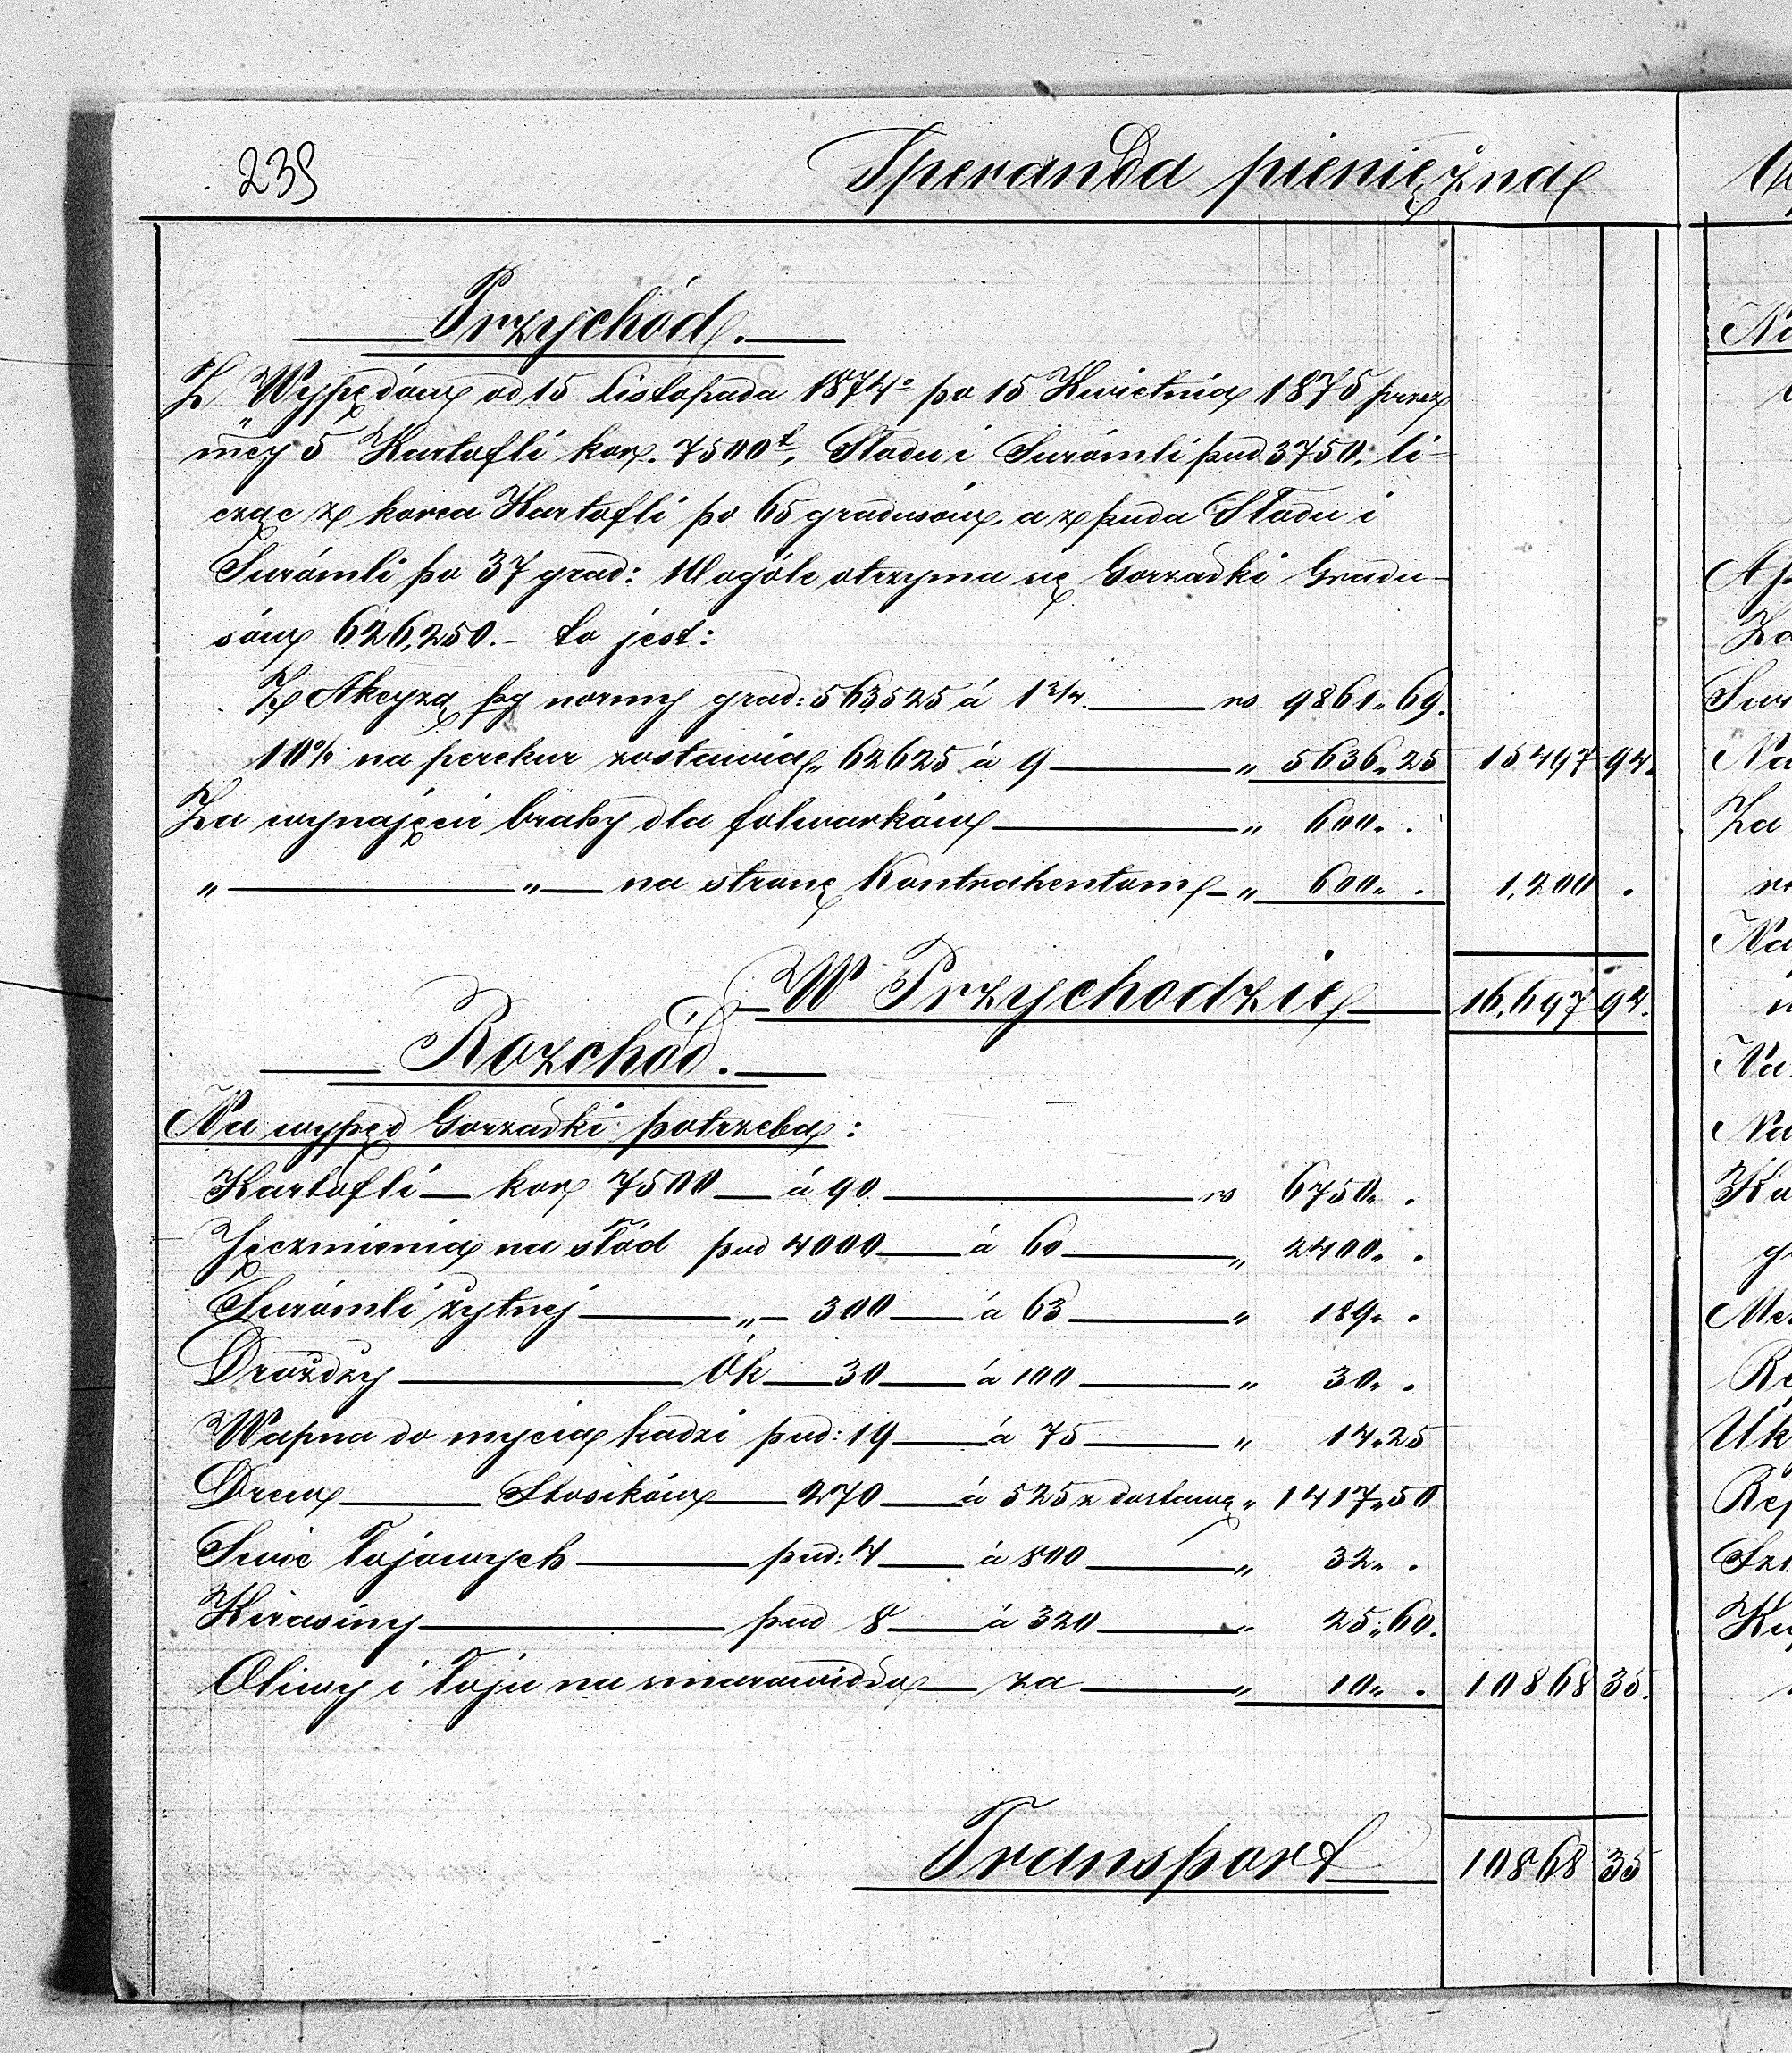 239
Speranda pieniężna
Przychód.
Z Wypędów od 15 Listopada 1874º po 15 Kwietnia 1875 przez
mcy 5 Kartofli kor. 7500, Słodu i Surómli pud 3750, li-
cząc z korca Kartofli po 65 gradusów, a z puda Słodu i
Surómli po 37 grad: Wogóle otrzyma się Gorzałki Gradu-
sów 626,250.- to jest:
Z Akcyzą pg normy grad: 563525 á 1¾. rs. 9861„69.
10% na perekur zostawia „ 62625 á 9 „ 5636„25 15497 94.
Za wynajęcie brahy dla folwarków „ 600„ .
„ „ na stronę Kontrahentom „ 600„ . 1,200 .
W Przychodzie 16,697 94.
Rozchód.
Na wypęd Gorzałki potrzeba:
Kartofli kor 7500 á 90 rs 6750„ .
Jęczmienia na słód pud 4000 á 60 „ 2400„ .
Surómli żytnej „ 300 á 63 „ 189„ .
Drożdży Ok 30 á 100 „ 30„ .
Wapna do mycia kadzi pud: 19 á 75 „ 14„25
Drew Stosików 270 á 525 z dostawą „ 1417„50
Swic łojowych pud: 4 á 800 „ 32„ .
Kirasiny pud 8 á 320 „ 25„60.
Oliwy i łoju na smarowidła za „ 10„ . 10868 35.
Transport 10868 35